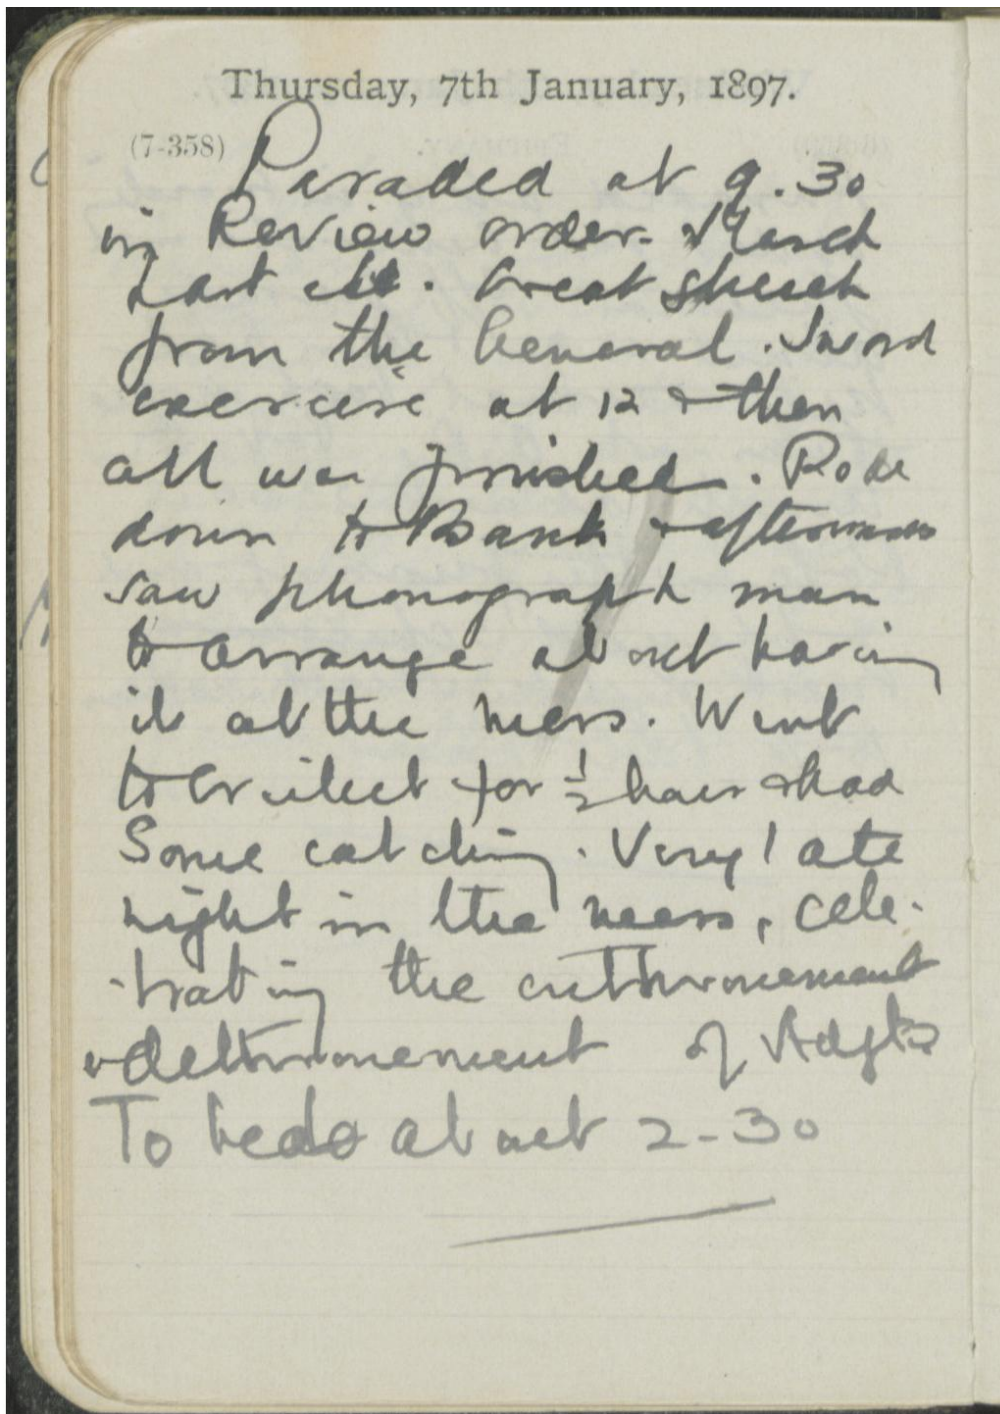 Thursday, 7th January, 1897.
(7-358)
Paraded at 9.30
in Review order. March
Past etc. Great speech
from the General. Sword
exercise at 12 & then
all was finished. Rode
down to Bank & afterwards
saw phonograph man
to arrange about having
it at the mess. Went
to Cricket for ½ hour & had
Some catching. Very late
night in the mess, cele-
-brating the enthronement
& dethronement of
To bed about 2-30